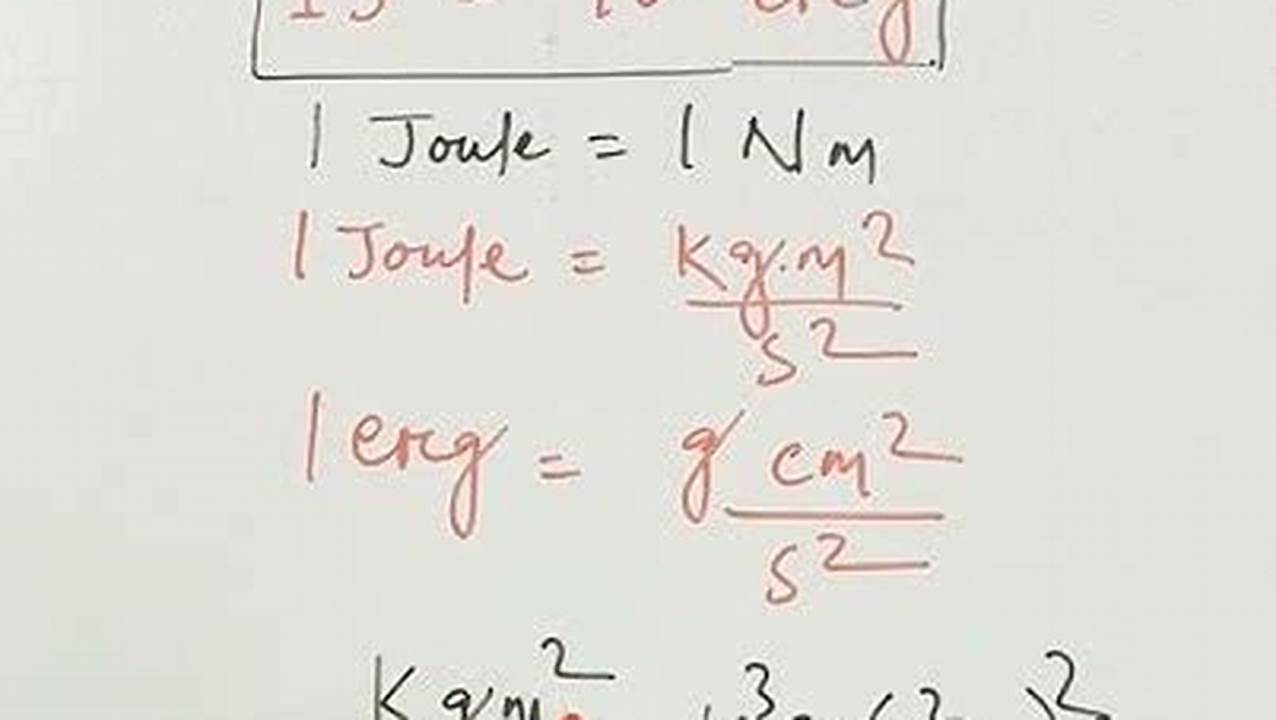 erg
1 Joule = 1 Nm
1 Joule = kg.m²
s²
1 erg = g cm²
s²
Kgm²